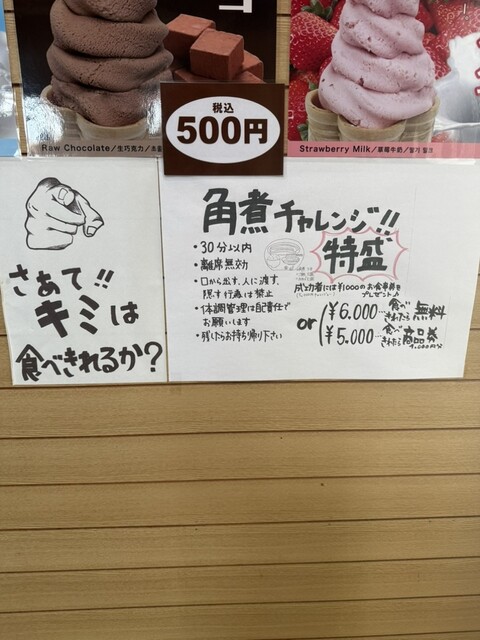 税込
500円
Raw Chocolate／生巧克力／
Strawberry Milk／草莓牛奶／딸기 밀크
さあて!!
キミは
食べきれるか?
角煮チャレンジ!!
特盛
・30分以内
・離席無効
・口から出す、人に渡す、
隠す行為は禁止
・体調管理は自責任で
お願いします
・残したらお持ち帰り下さい
成功者には¥1000のお食事券を
プレゼント♪
¥6.000…食べきれたら無料
or
¥5.000…食べきれたら商品券